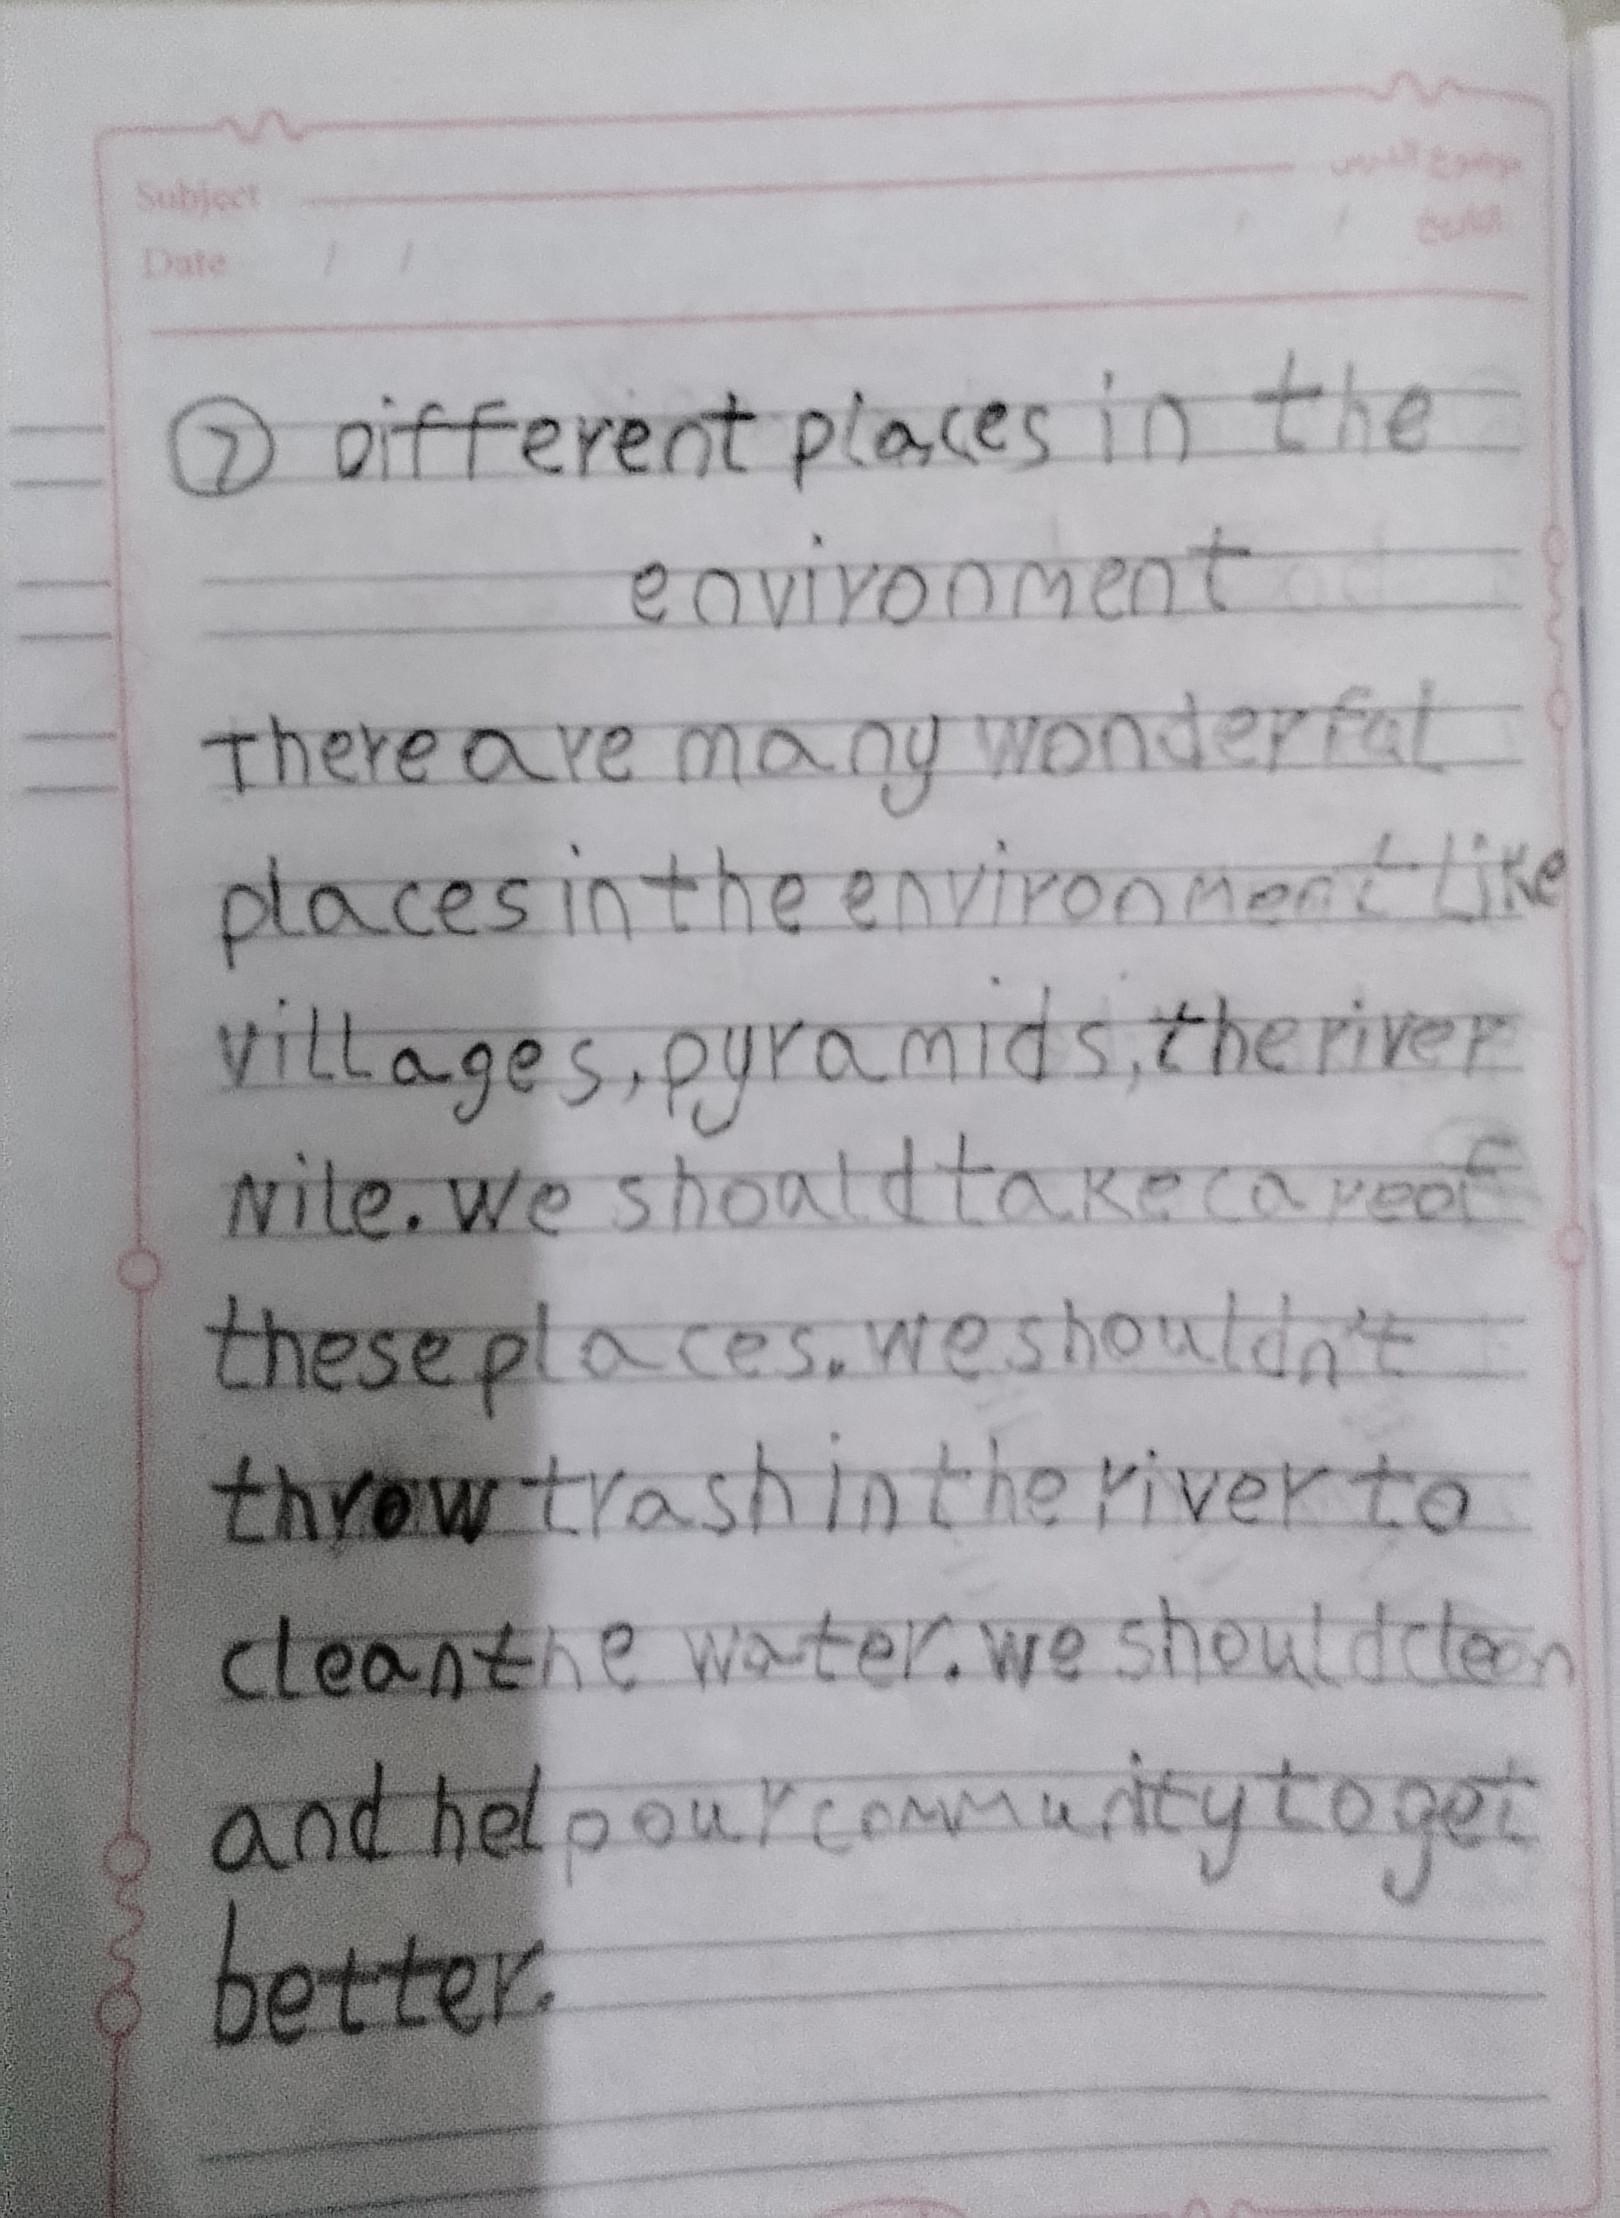 Subject موضوع الدرس
Date / / / / التاريخ
② Different places in the
environment
there are many wonderful
places in the environment like
villages, pyramids, the river
Nile. We should take care of
these places. we shouldn't
throw trash in the river to
clean the water. we should clean
and help our community to get
better.